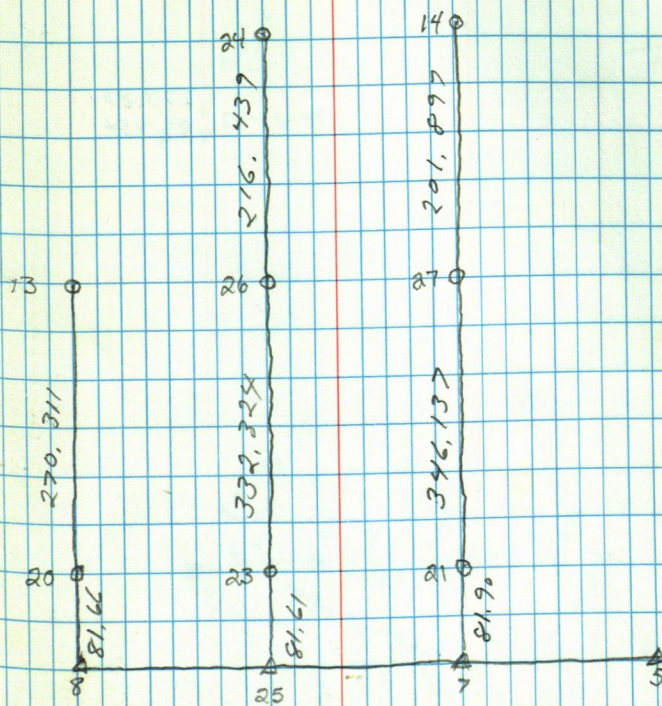 24
14
216.439
201.897
13
26
27
270.311
332.324
346.137
20
23
21
81.66
81.61
81.90
8
25
7
5